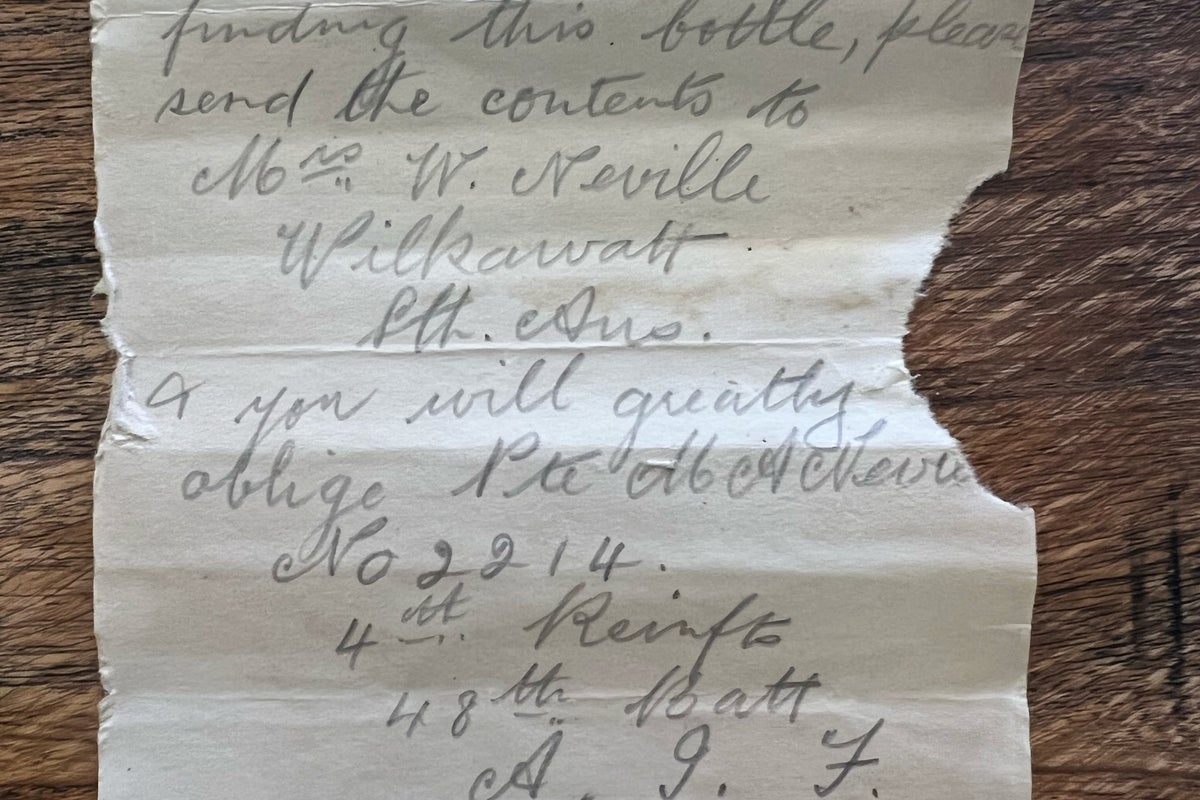 finding this bottle, please
send the contents to
Mrs W. Neville
Wilkawatt
Sth. Aus.
& you will greatly
oblige Pte M A Nevil
No 2214.
4th Reinfts
48th Batt
A. I. F.